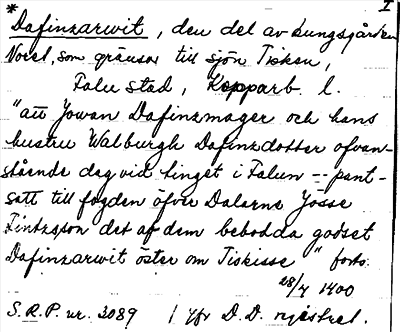 I
* Dafinzarwit, den del av kungsgården
Noret, som gränsar till sjön Tisken,
Falu stad, Kopparb. l.
"att Jowan Dafinzmager och hans
hustru Walburgh Dafinzdotter ofvan-
stående dag vid tinget i Falun -- pant-
satt till fogden öfver Dalarne Jösse
Fintzsson det af dem bebodda godset
Dafinzarwit öster om Tiskisse" forts.
28/4 1400
S.R.P. nr. 3089 / Jfr D.D.